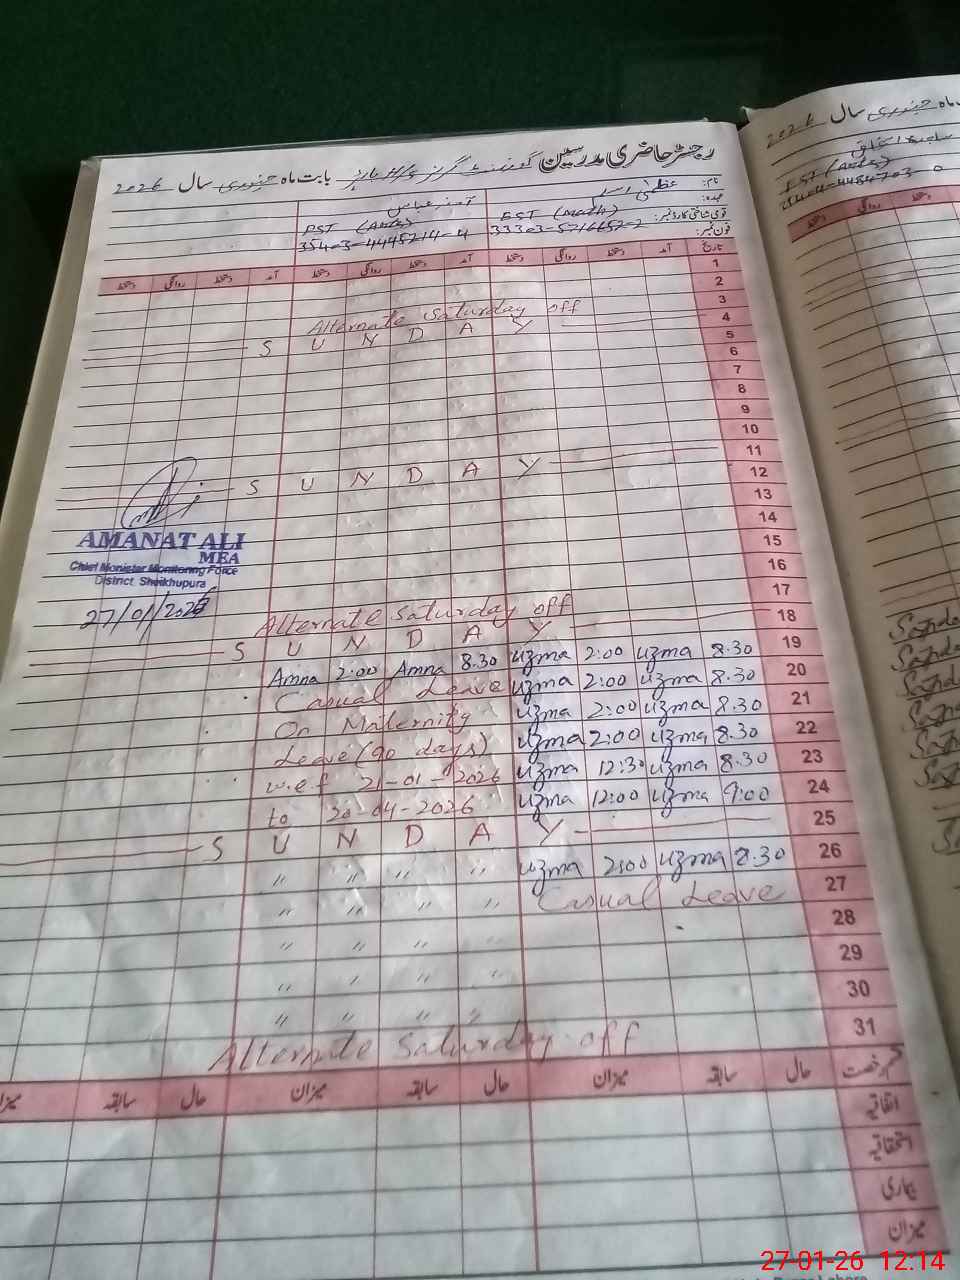 رجسٹر حاضری مدرسین گورنمنٹ گرلز بابت ماہ جنوری سال 2026
نام:
عہدہ:
قومی شناختی کارڈ نمبر:
فون نمبر:
EST (Math)
33303-5716652-2
PST (Arts)
35403-4445214-4
تاریخ آمد دستخط روانگی دستخط آمد دستخط روانگی دستخط دستخط روانگی دستخط
1
2
3 Alternate Saturday off
4 S U N D A Y
5
6
7
8
9
10
11 S U N D A Y
12
13
14
15
16
17 Alternate Saturday off
18 S U N D A Y
19 Amna 2:00 Amna 8.30 Uzma 2:00 Uzma 8.30
20 Casual Leave Uzma 2:00 Uzma 8.30
21 On Maternity Uzma 2:00 Uzma 8.30
22 Leave (90 days) Uzma 2:00 Uzma 8.30
23 w.e.f 21-01-2026 Uzma 12:30 Uzma 8.30
24 to 20-04-2026 Uzma 12:00 Uzma 9:00
25 S U N D A Y
26 〃 〃 〃 〃 Uzma 2:00 Uzma 8.30
27 〃 〃 〃 〃 Casual Leave
28 〃 〃 〃 〃
29 〃 〃 〃 〃
30 〃 〃 〃 〃
31 Alternate Saturday off
قسم رخصت حال سابقہ میزان حال سابقہ میزان حال سابقہ میزان
اتفاقیہ
استحقاقیہ
بیماری
میزان
AMANAT ALI
MEA
Chief Monister Monitoring Force
District Sheikhupura
27/01/2026
سال 2026
جنوری
EST (Arts)
27-01-26 12:14